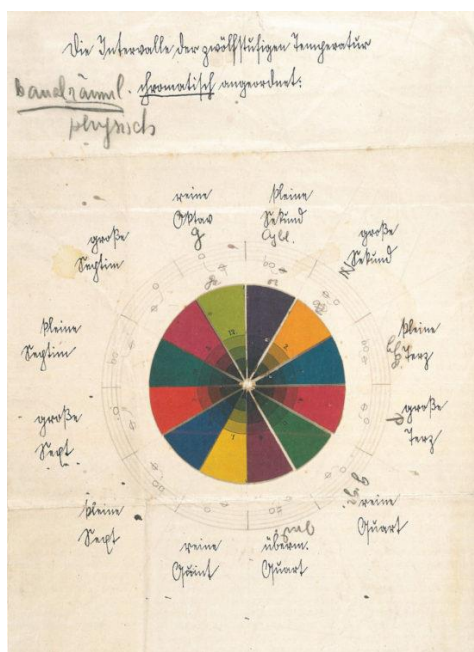 Die Intervalle der zwölfstufigen Temperatur
chromatisch angeordnet:
physisch
reine
Oktav
g
kleine
Sekund
große
Sekund
kleine
Terz
große
Terz
reine
Quart
überm.
Quart
reine
Quint
kleine
Sext
große
Sext
kleine
Septim
große
Septim
12
7